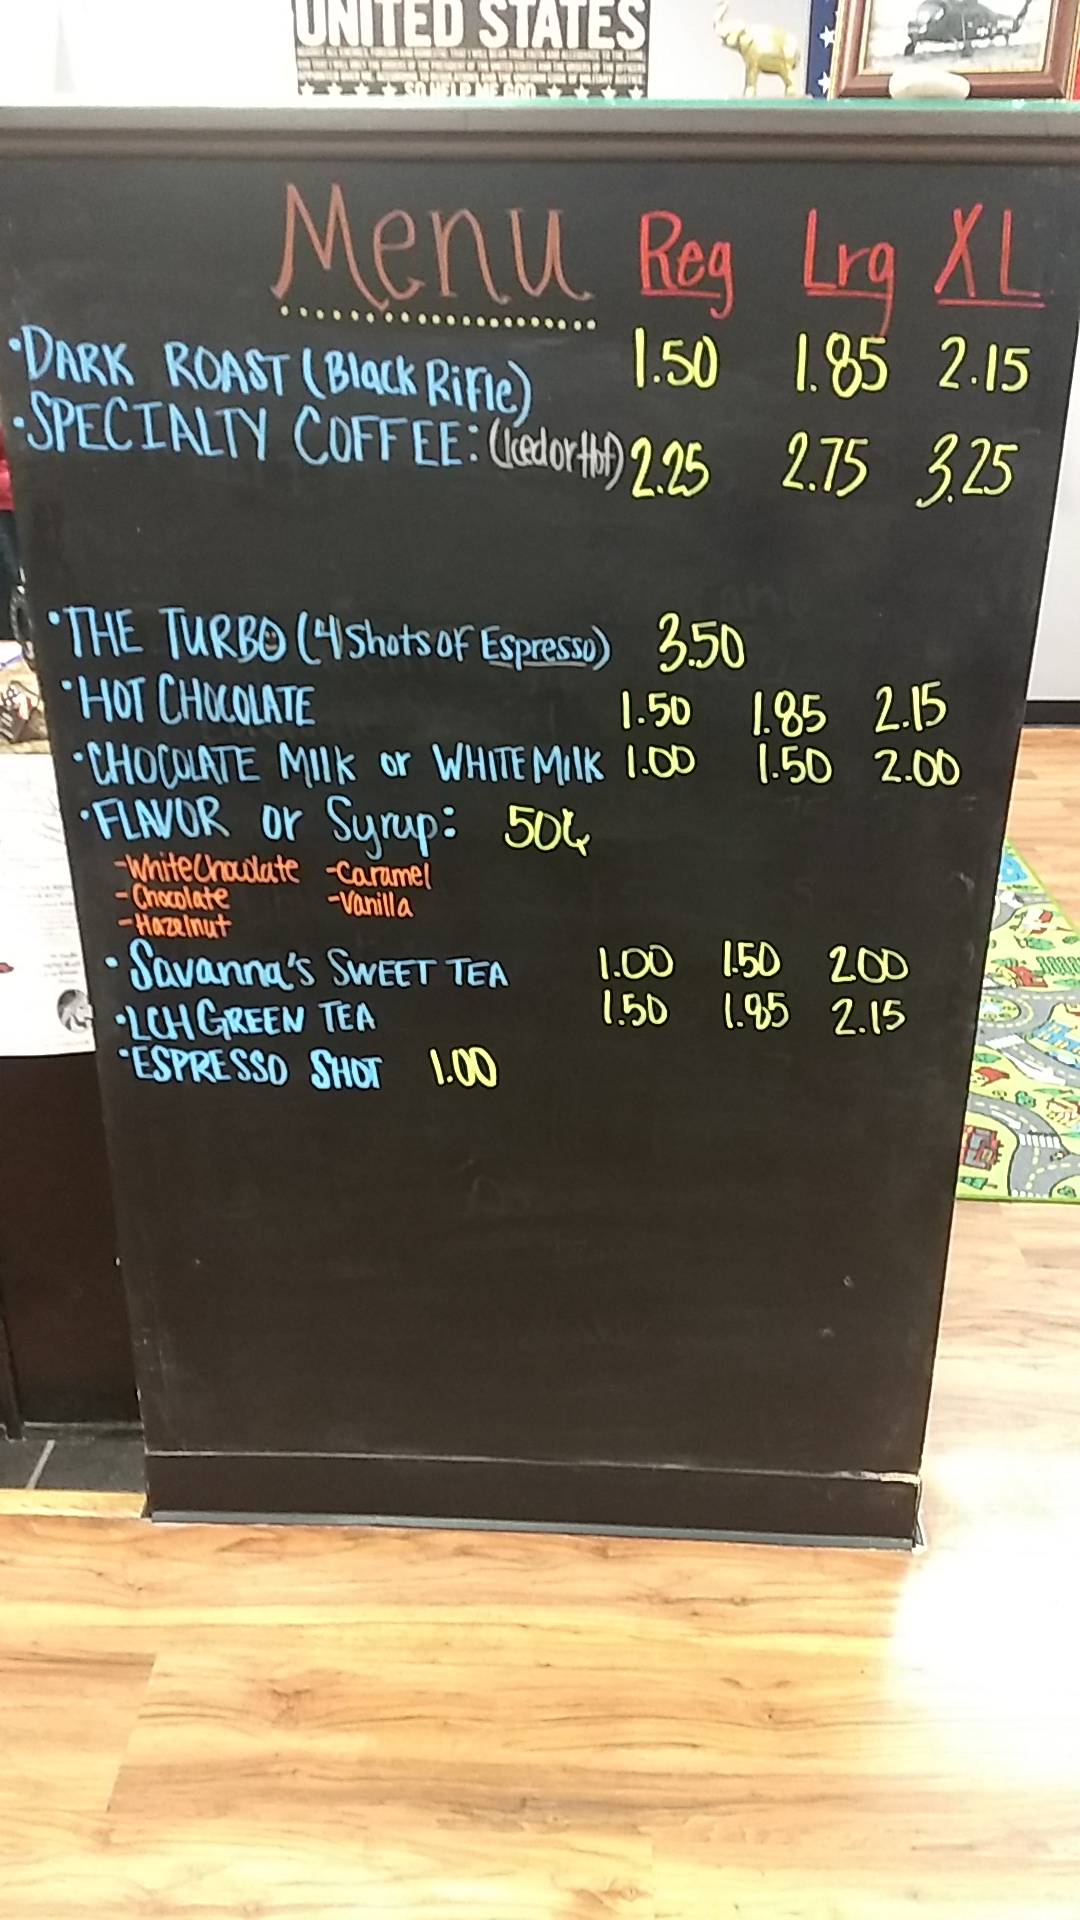 UNITED STATES
★ ★ ★ ★ SO HELP ME GOD ★ ★ ★ ★
Menu Reg Lrg XL
• DARK ROAST (Black Rifle) 1.50 1.85 2.15
• SPECIALTY COFFEE: (Iced or Hot) 2.25 2.75 3.25
• THE TURBO (4 Shots of Espresso) 3.50
• HOT CHOCOLATE 1.50 1.85 2.15
• CHOCOLATE MIlk or WHITE MILK 1.00 1.50 2.00
• FLAVOR or Syrup: 50¢
- White Chocolate - Caramel
- Chocolate - Vanilla
- Hazelnut
• Savanna's SWEET TEA 1.00 1.50 2.00
• LCH GREEN TEA 1.50 1.85 2.15
• ESPRESSO SHOT 1.00